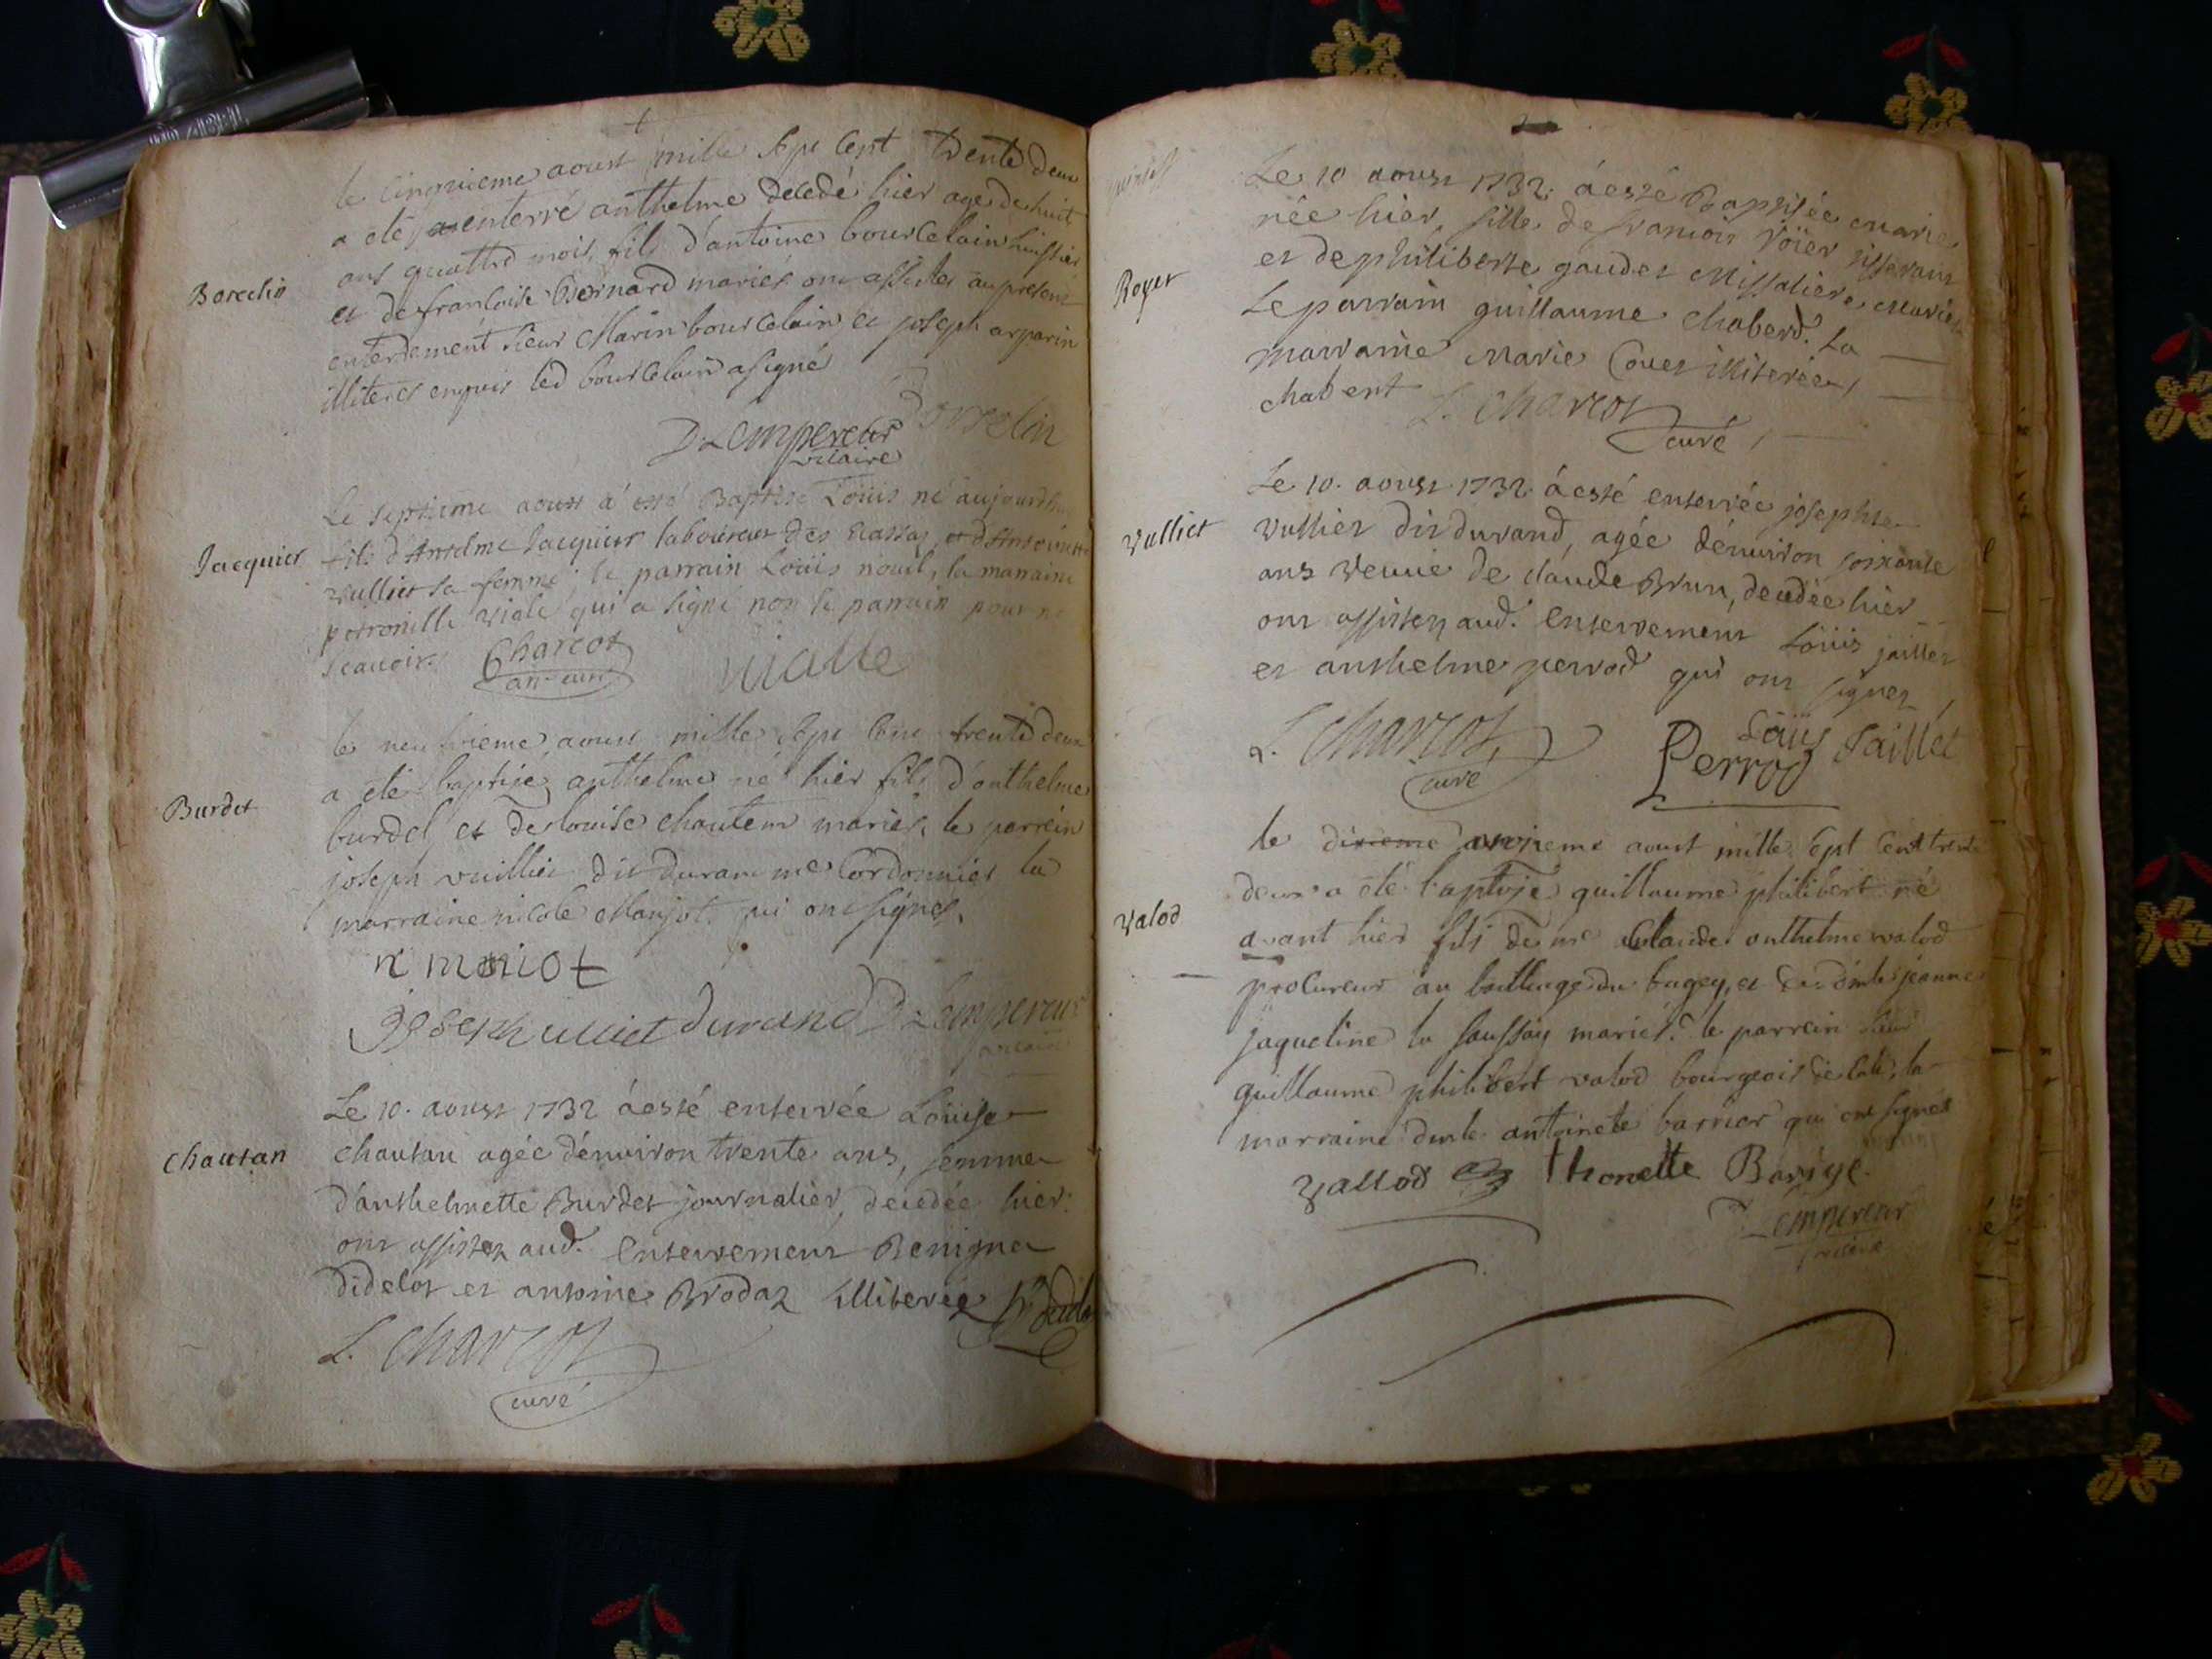 le cinquieme aoust mille sept cent trente deux
a eté enterré anthelme decedé hier agé de huit
ans quattre mois, fils d'antoine bourcelain huissier
Borcelin
et de francoise Bernard mariés ont assistes au present
enterrement sieur Marin bourcelain et joseph arparin
illiteres enquis led bourcelain a signé
Borcelin
D. Lempereur
vicaire
Le septieme aoust a esté Baptisé Loüis né aujourdhuy
Jacquier
fils d'Anselme Jacquier laboureur des et d'Antoinette
vulliet sa femme; le parrain Loüis nouil, la marraine
petronille viale qui a signé non le parrain pour ne
scauoir. Charcot
an. curé
vialle
le neufvieme aoust mille sept cent trente deux
a eté baptisé anthelme né hier fils d'anthelme
Burdet
burdet et de louise chautem mariés, le parrein
joseph vuillier dit durant me Cordonnier la
marraine nicole Manjot qui ont signés.
n manjot
Joseph ulliet durand D. Lempereur
vicaire
Le 10. aoust 1732 a esté enterrée Loüise
Chautan
chautan agée d'enuiron trente ans, femme
d'anthelmette Burdet journalier, decedée hier.
ont assistez aud. enterrement Benigne
didelot et antoine Brodaz illiterez
L. Charcot
curé
Le 10 aoust 1732. a esté Baptisée marie
née hier, fille de francois Roïer tisserant
Royer
et de philiberte gaudet Missaliere mariés
Le parrain guillaume chaberd. La
marraine Marie Couet illiterée,
chabert L. Charcot
curé
Le 10. aoust 1732. a esté enterrée josephte
Vulliet
vulliet dit durand, agée d'enuiron soixante
ans veuue de claude Brun, decedée hier
ont assistez aud. enterrement Loüis jaillet
et anthelme perrod qui ont signez
L. Charcot
curé
Loüis Jaillet
Perrod
le dixieme onzieme aoust mille sept cent trente
deux a eté baptisé guillaume philibert né
Valod
avant hier fils de me Claude anthelme valod
procureur au bailliage du bugey, et de dmlle jeanne
jaqueline la saussay mariés. le parrein sieur
guillaume philibert valod bourgeois de la
marraine dmlle antoinete barrier qui ont signes
Vallod thonette Barige.
D. Lempereur
vicaire